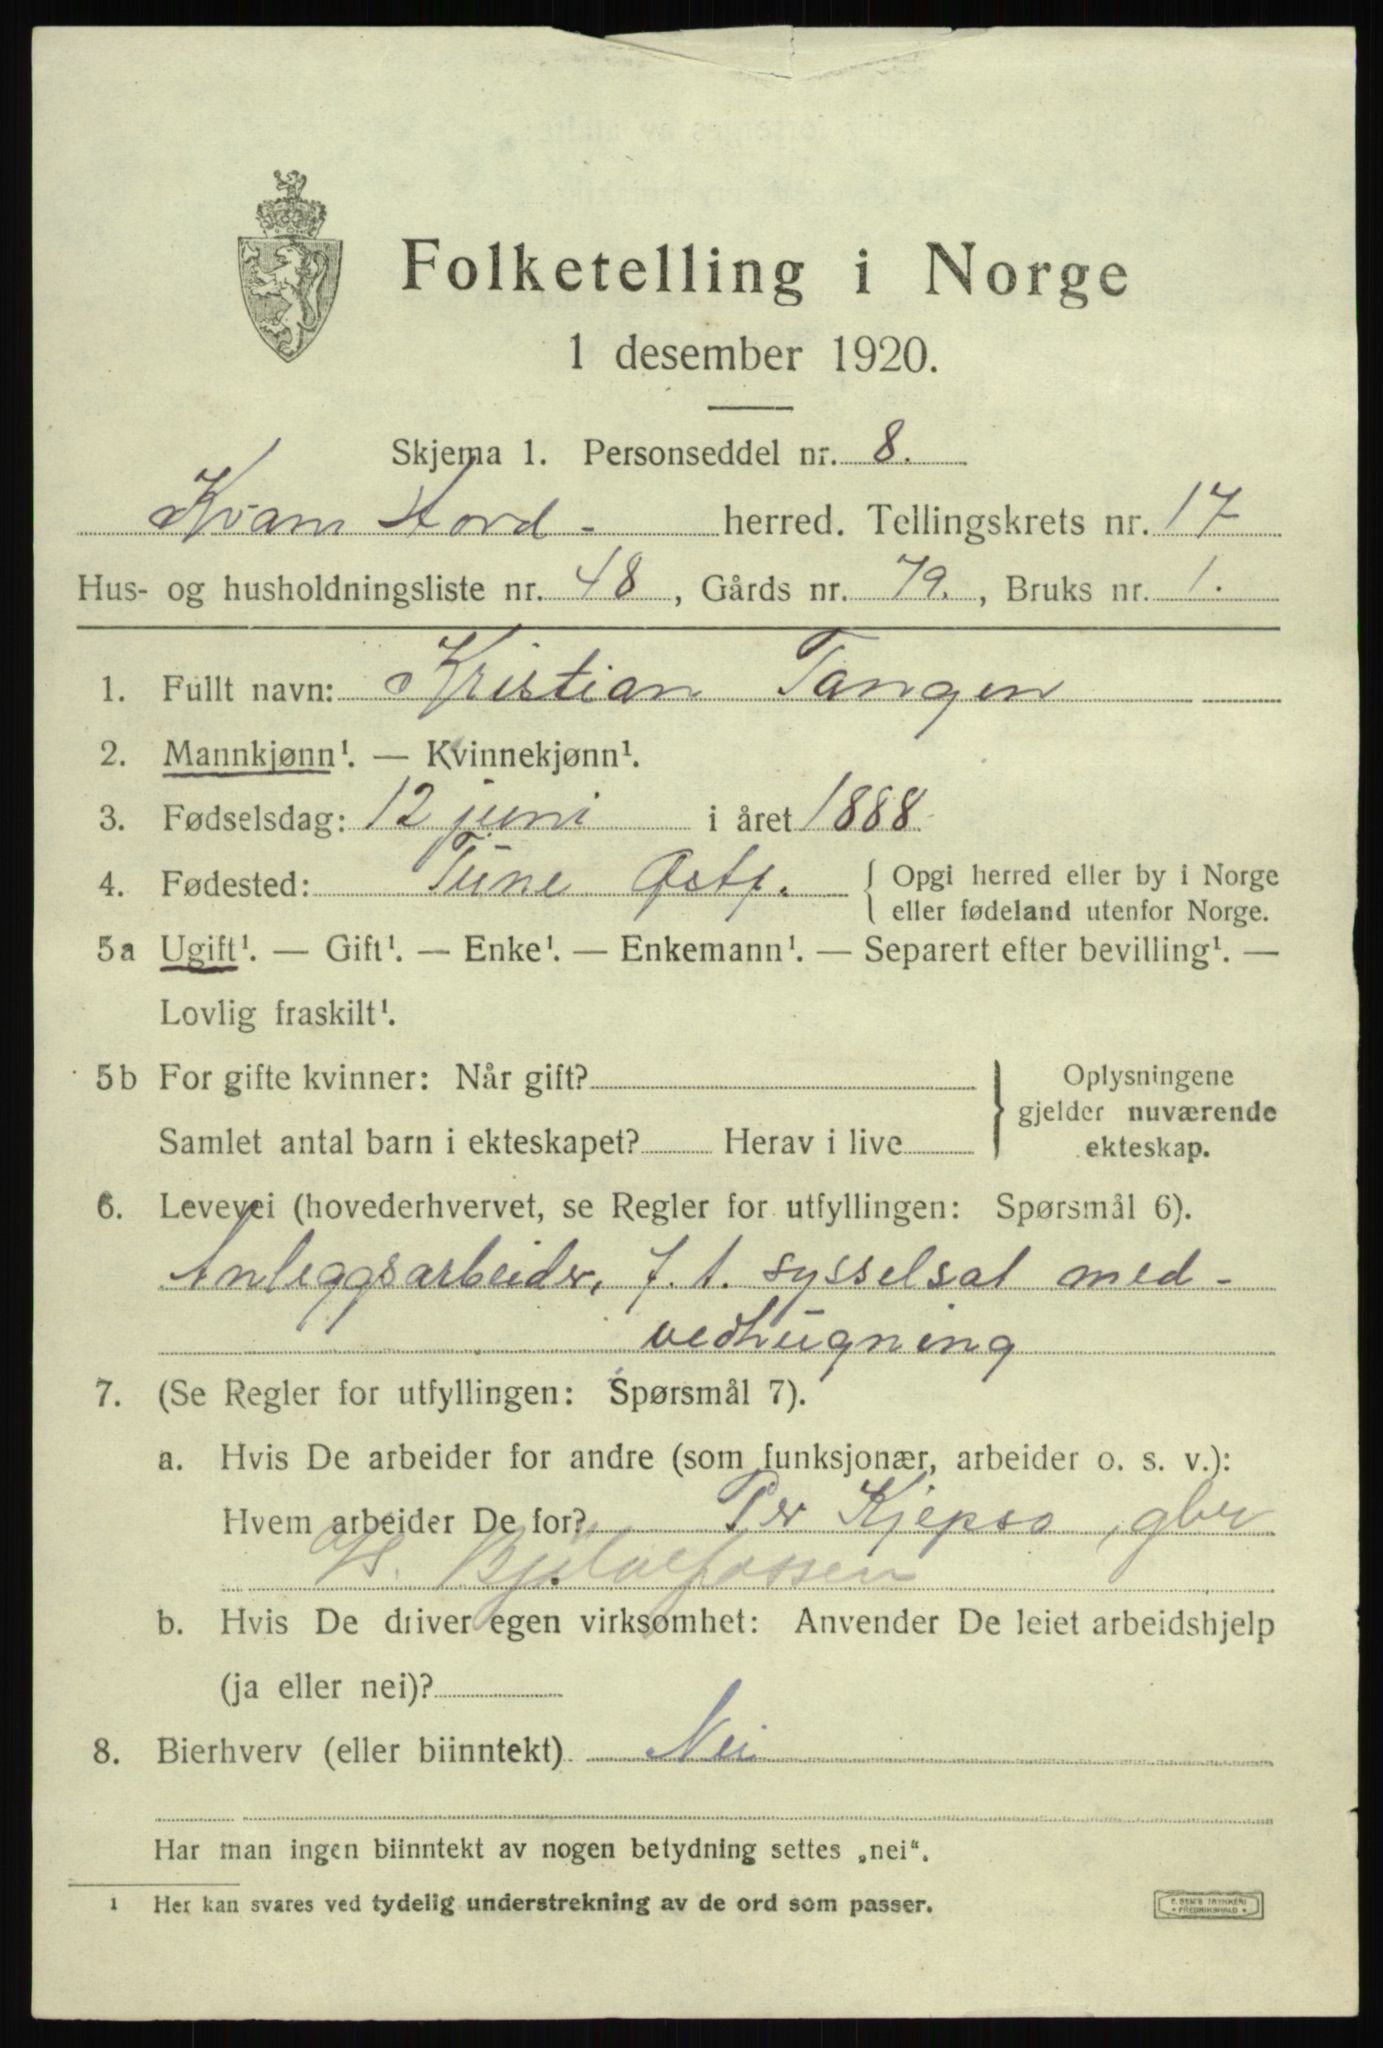 Folketelling i Norge
1 desember 1920.
Skjema 1. Personseddel nr. 8.
Kvam Hord - herred. Tellingskrets nr. 17
Hus- og husholdningsliste nr. 48, Gårds nr. 79., Bruks nr. 1.
1. Fullt navn: Kristian Tangen
2. Mannkjønn¹. — Kvinnekjønn¹.
3. Fødselsdag: 12 juni i året 1888
4. Fødested: Tune Østf. { Opgi herred eller by i Norge
eller fødeland utenfor Norge.
5a Ugift¹. — Gift¹. — Enke¹. — Enkemann¹. — Separert efter bevilling¹. —
Lovlig fraskilt¹.
5b For gifte kvinner: Når gift? } Oplysningene
gjelder nuværende
Samlet antal barn i ekteskapet? Herav i live
ekteskap.
6. Levevei (hovederhvervet, se Regler for utfyllingen: Spørsmål 6).
Anleggsarbeider, f. t. sysselsat med -
vedhugning
7. (Se Regler for utfyllingen: Spørsmål 7).
a. Hvis De arbeider for andre (som funksjonær, arbeider o. s. v.):
Hvem arbeider De for? Per Kjepso, gbr
b. Hvis De driver egen virksomhet: Anvender De leiet arbeidshjelp
(ja eller nei)?
8. Bierhverv (eller biinntekt) Nei
Har man ingen biinntekt av nogen betydning settes „nei“.
1 Her kan svares ved tydelig understrekning av de ord som passer.